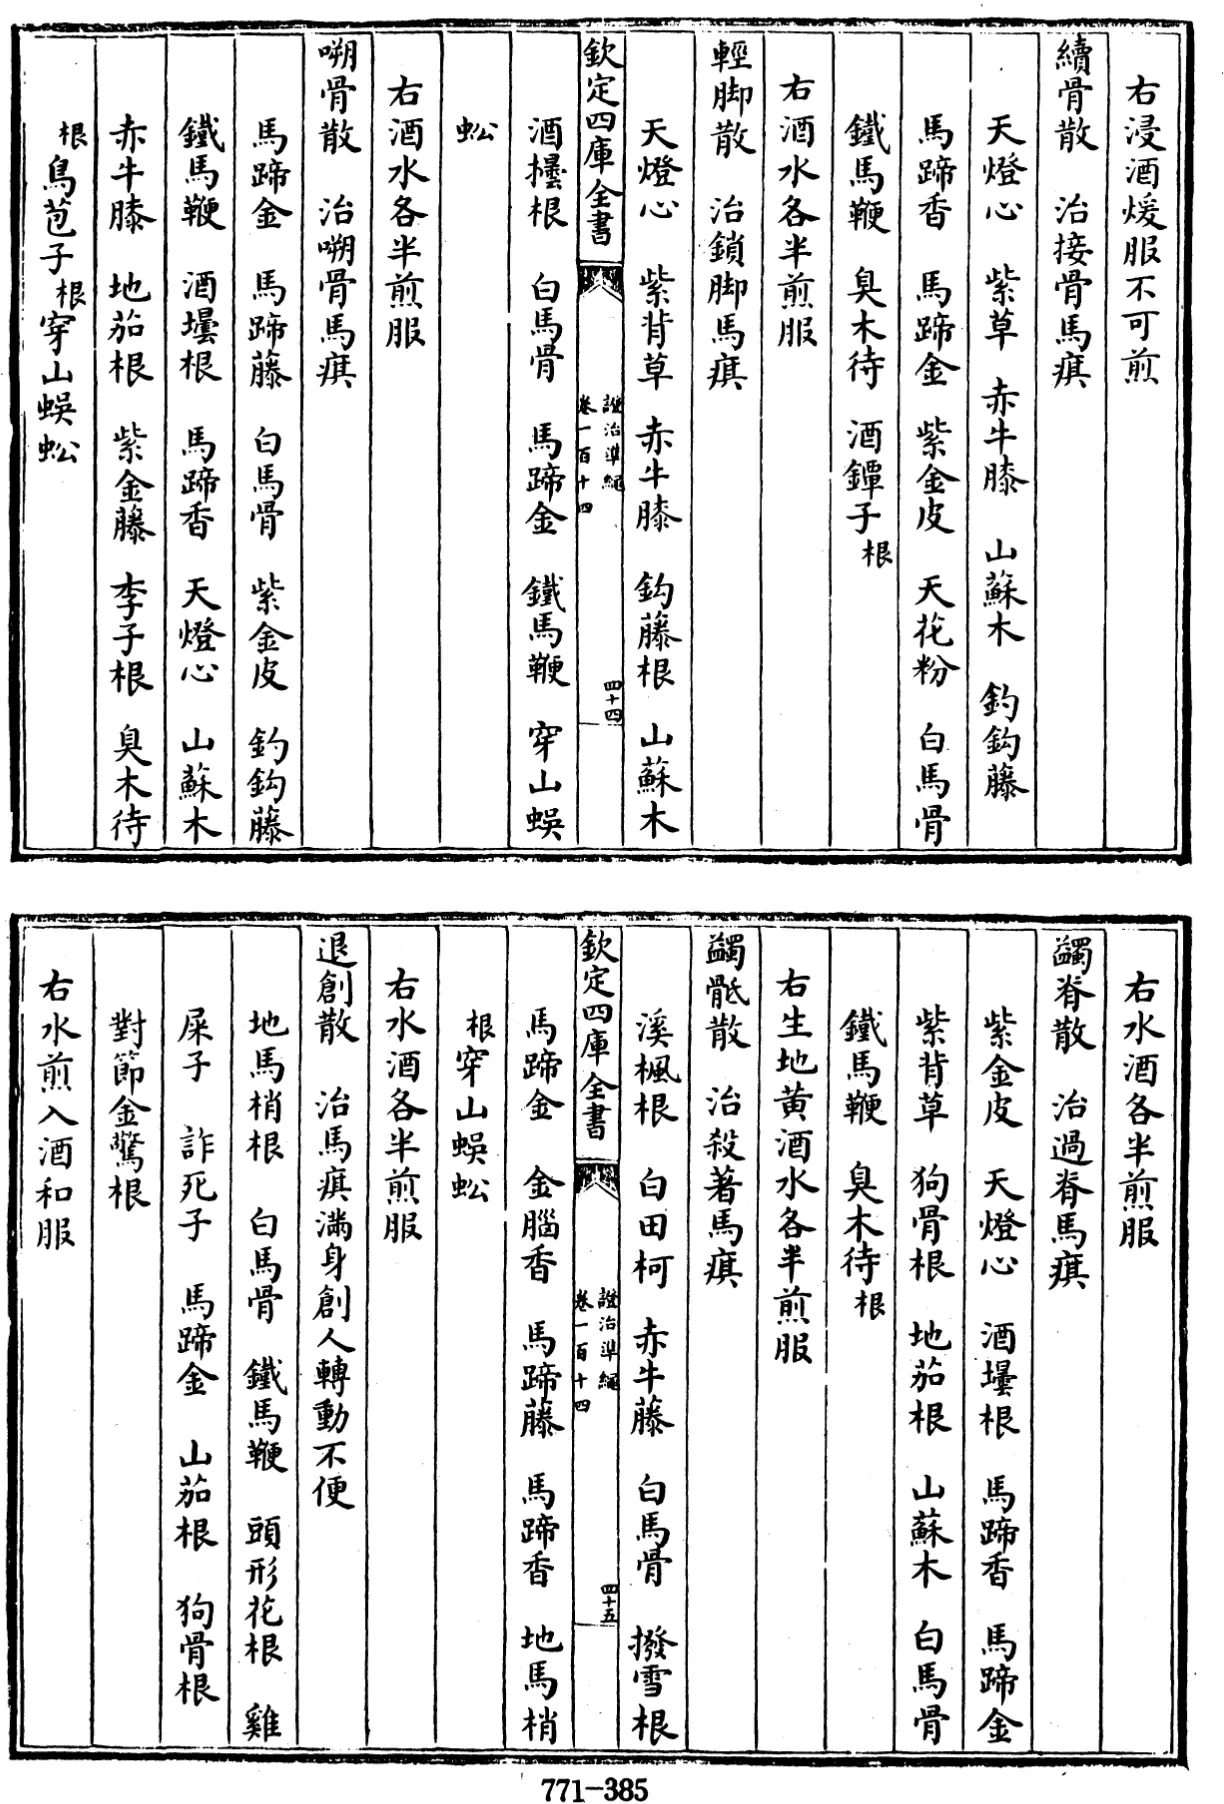 右浸酒煖服不可煎
續骨散　治接骨馬㾾
天燈心　紫草　赤牛膝　山蘇木　釣鈎藤
馬蹄香　馬蹄金　紫金皮　天花粉　白馬骨
鐵馬鞭　臭木待　酒罈子根
右酒水各半煎服
輕脚散　治鎖脚馬㾾
天燈心　紫背草　赤牛膝　鈎藤根　山蘇木
欽定四庫全書
證治準繩
卷一百十四
四十四
酒櫑根　白馬骨　馬蹄金　鐵馬鞭　穿山蜈
蚣
右酒水各半煎服
嘲骨散　治嘲骨馬㾾
馬蹄金　馬蹄藤　白馬骨　紫金皮　釣鈎藤
鐵馬鞭　酒壜根　馬蹄香　天燈心　山蘇木
赤牛膝　地茄根　紫金藤　李子根　臭木待
根烏苞子根穿山蜈蚣
右水酒各半煎服
蠲脊散　治過脊馬㾾
紫金皮　天燈心　酒壜根　馬蹄香　馬蹄金
紫背草　狗骨根　地茄根　山蘇木　白馬骨
鐵馬鞭　臭木待根
右生地黄酒水各半煎服
蠲骶散　治殺著馬㾾
溪楓根　白田柯　赤牛藤　白馬骨　撥雪根
欽定四庫全書
證治準繩
卷一百十四
四十五
馬蹄金　金腦香　馬蹄藤　馬蹄香　地馬梢
根穿山蜈蚣
右水酒各半煎服
退創散　治馬㾾滿身創人轉動不便
地馬梢根　白馬骨　鐵馬鞭　頭形花根　雞
屎子　詐死子　馬蹄金　山茄根　狗骨根
對節金驚根
右水煎入酒和服
771-385